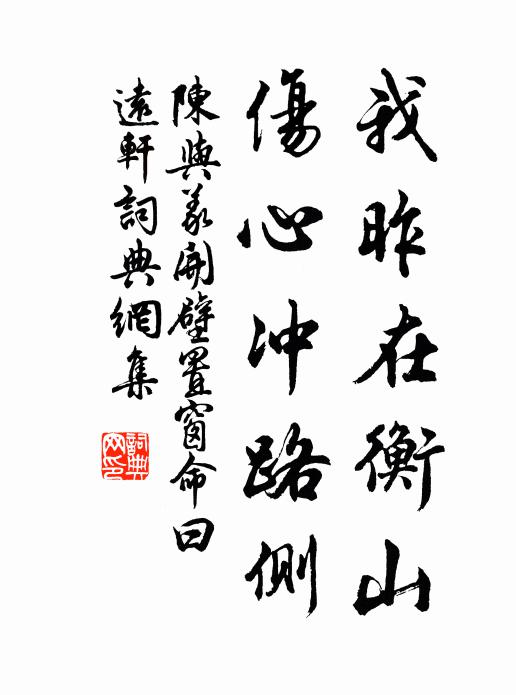 我昨在衡山
傷心冲路側
陳與義開壁置窗命曰
遠軒詞典網集
詞典網印